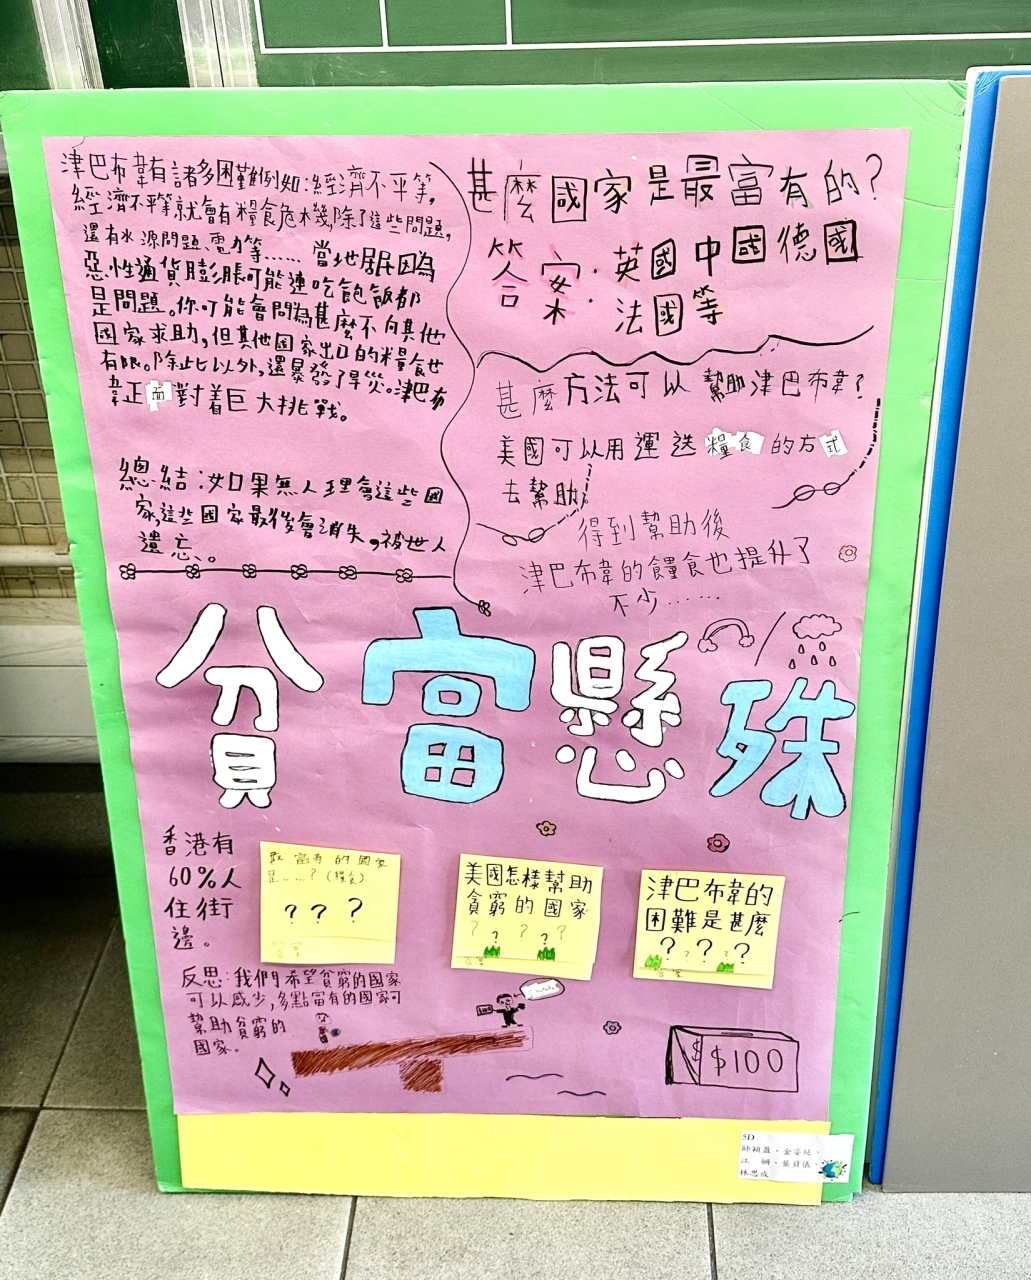 津巴布韋有諸多困難例如:經濟不平等,
經濟不平等就會有糧食危機,除了這些問題,
還有水源問題、電力等……當地居民因為
惡性通貨膨脹可能連吃飽飯都
是問題。你可能會問為甚麼不向其他
國家求助,但其他國家出口的糧食也
有限。除此以外,還暴發了旱災。津巴布
韋正面對着巨大挑戰。
總結:如果無人理會這些國
家,這些國家最後會消失,被世人
遺忘。
甚麼國家是最富有的?
答案:英國中國德國
法國等
甚麼方法可以幫助津巴布韋?
美國可以用運送糧食的方式
去幫助。
得到幫助後
津巴布韋的糧食也提升了
不少……
貧富懸殊
香港有
60%人
住街
邊。
富有的國家
是……?(糧食)
???
答案
美國怎樣幫助
貧窮的國家
?????
答案
津巴布韋的
困難是甚麼
?????
答案
反思:我們希望貧窮的國家
可以減少,多點富有的國家可
幫助貧窮的
國家。
$100
$ $100
5D
帥穎盈、金姿廷、
江 姍、葉貝儀、
林思成